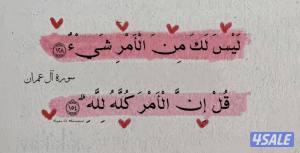 لَيْسَ لَكَ مِنَ ٱلْأَمْرِ شَىْءٌ ١٢٨
سورة آل عمران
قُلْ إِنَّ ٱلْأَمْرَ كُلَّهُۥ لِلَّهِ ۗ ١٥٤
4SALE